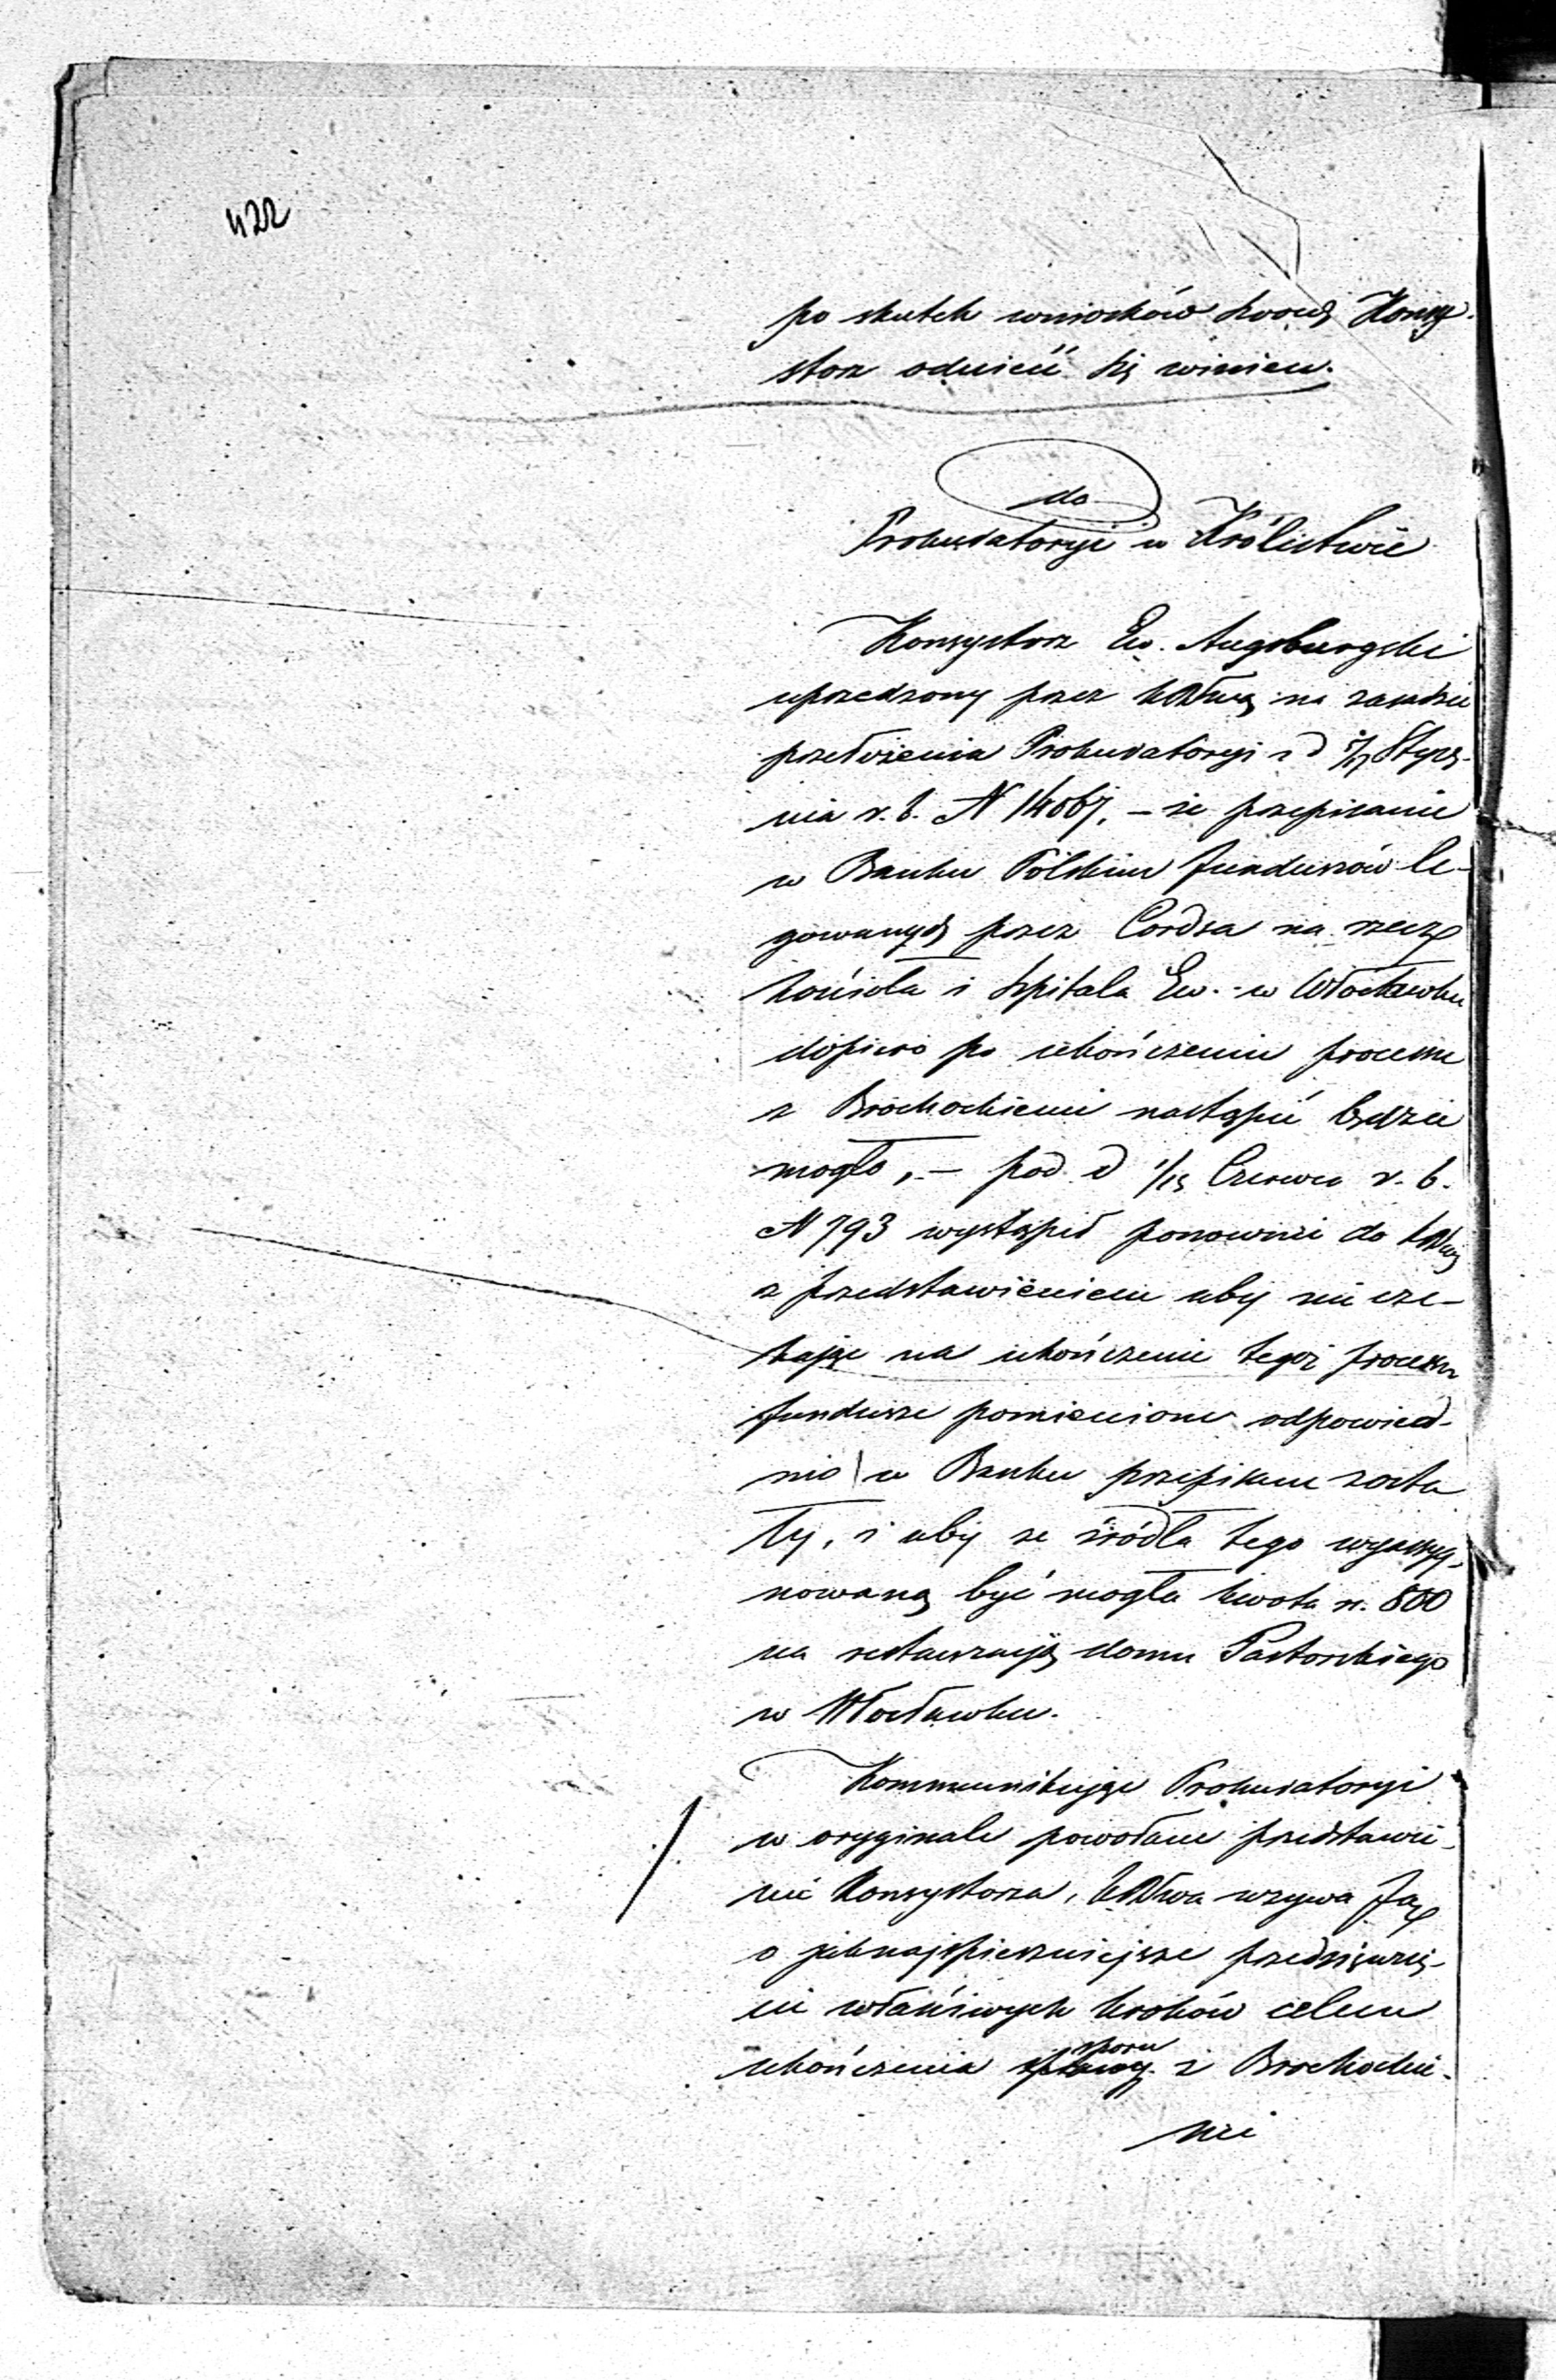 422
po skutek wniosków swoich Konsy-
storz odnieść się winien.
do
Prokuratoryi w Królestwie
Konsystorz Ew. Augsburgski
uprzedzony przez na zasadzie
przełożenia Prokuratoryi z d Stycz-
nia r. b. N 14067, – że przepisanie
w Banku Polskim funduszów le-
gowanych przez Cordsa na rzecz
kościoła i szpitala Ew. w Włocławku
dopiero po ukończeniu processu
z Brochockiemi nastąpić będzie
mogło, – pod d 1/13 Czerwca r. b.
N 793 wystąpił ponownie do
z przedstawieniem aby nie cze-
kając na ukończenie tegoż processu
fundusze pomienione odpowied-
nio w Banku przepisane zosta
ły, i aby ze źródła tego wyassyg-
nowaną być mogła kwota rs. 800
na restauracyą domu Pastorskiego
w Włocławku.
Kommunikując Prokuratoryi
w oryginale powołane przedstawie-
nie Konsystorza, wzywa Ją
o jaknajspieszniejsze przedsięwzię-
cie właściwych kroków celem
ukończenia sporu z Brochockie-
mi